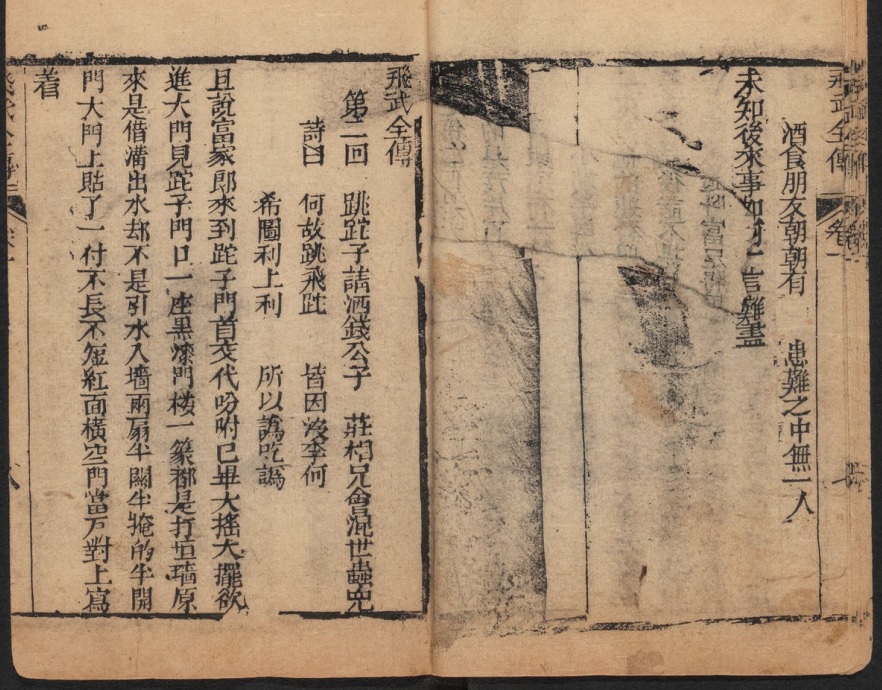 飛武全傳
卷一
酒食朋友朝朝有　患難之中無一人
未知後來事如何一言難盡
飛武全傳
第二回　跳跎子請酒錢公子　莊相兄會混世蟲兇
詩曰　何故跳飛跎　皆因沒李何
希圖利上利　所以譌吃譌
且說富家郎來到跎子門首交代吩咐已畢大搖大擺欲
進大門見跎子門口一座黑漆門楼一篆都是打垣墻原
來是借溝出水却不是引水入墻兩扇半関半掩的半開
門大門上貼了一付不長不短紅面橫空門當戶對上寫
着